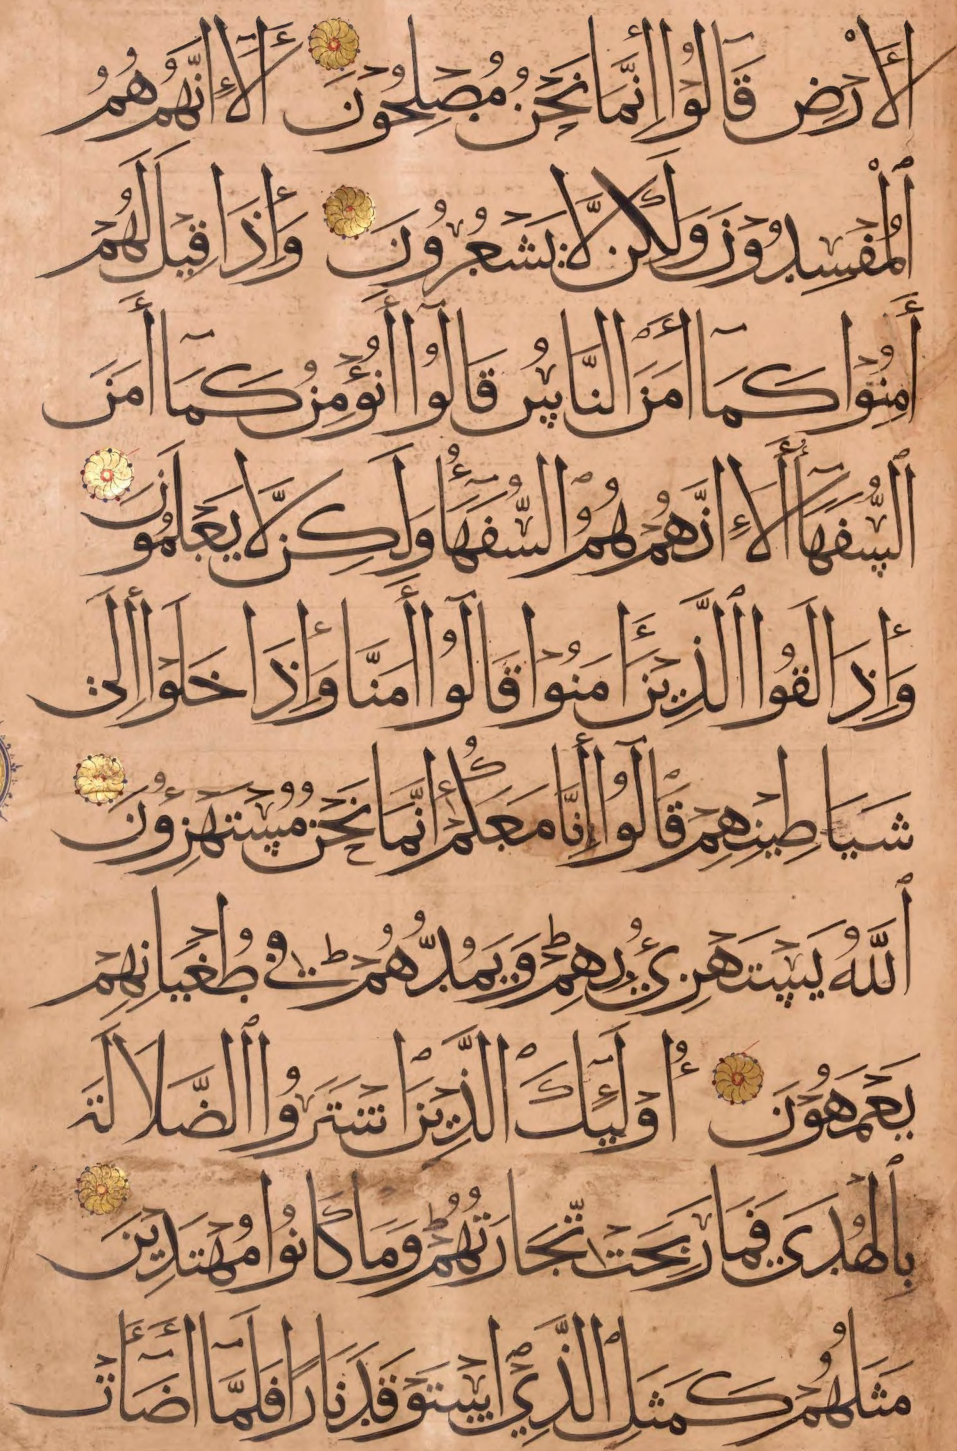 ٱلْأَرْضِ قَالُوٓا إِنَّمَا نَحْنُ مُصْلِحُونَ أَلَآ إِنَّهُمْ هُمُ
ٱلْمُفْسِدُونَ وَلَكِن لَّا يَشْعُرُونَ وَإِذَا قِيلَ لَهُمْ
أَمِنُوا كَمَآ أَمَنَ النَّاسُ قَالُوٓا أَنُؤْمِنُ كَمَآ أَمَنَ
ٱلسُّفَهَآءُ أَلَآ إِنَّهُمْ هُمُ السُّفَهَآءُ وَلَكِن لَّا يَعْلَمُونَ
وَإِذَا لَقُوا ٱلَّذِينَ أَمَنُوا قَالُوٓا أَمَنَّا وَإِذَا خَلَوْا إِلَى
شَيَاطِينِهِمْ قَالُوٓا إِنَّا مَعَكُمْ إِنَّمَا نَحْنُ مُسْتَهْزِؤُنَ
ٱللَّهُ يَسْتَهْزِئُ بِهِمْ ط وَيَمُدُّهُمْ ط فِي طُغْيَانِهِمْ
يَعْمَهُونَ أُوْلَٓئِكَ الَّذِينَ اشْتَرَوُا ٱلضَّلَالَةَ
بِٱلْهُدَى فَمَا رَبِحَتْ تِّجَارَتُهُمْ ط وَمَا كَانُوا مُهْتَدِينَ
مَثَلُهُمْ كَمَثَلِ الَّذِي اسْتَوْقَدَ نَارًا فَلَمَّآ أَضَآءَتْ